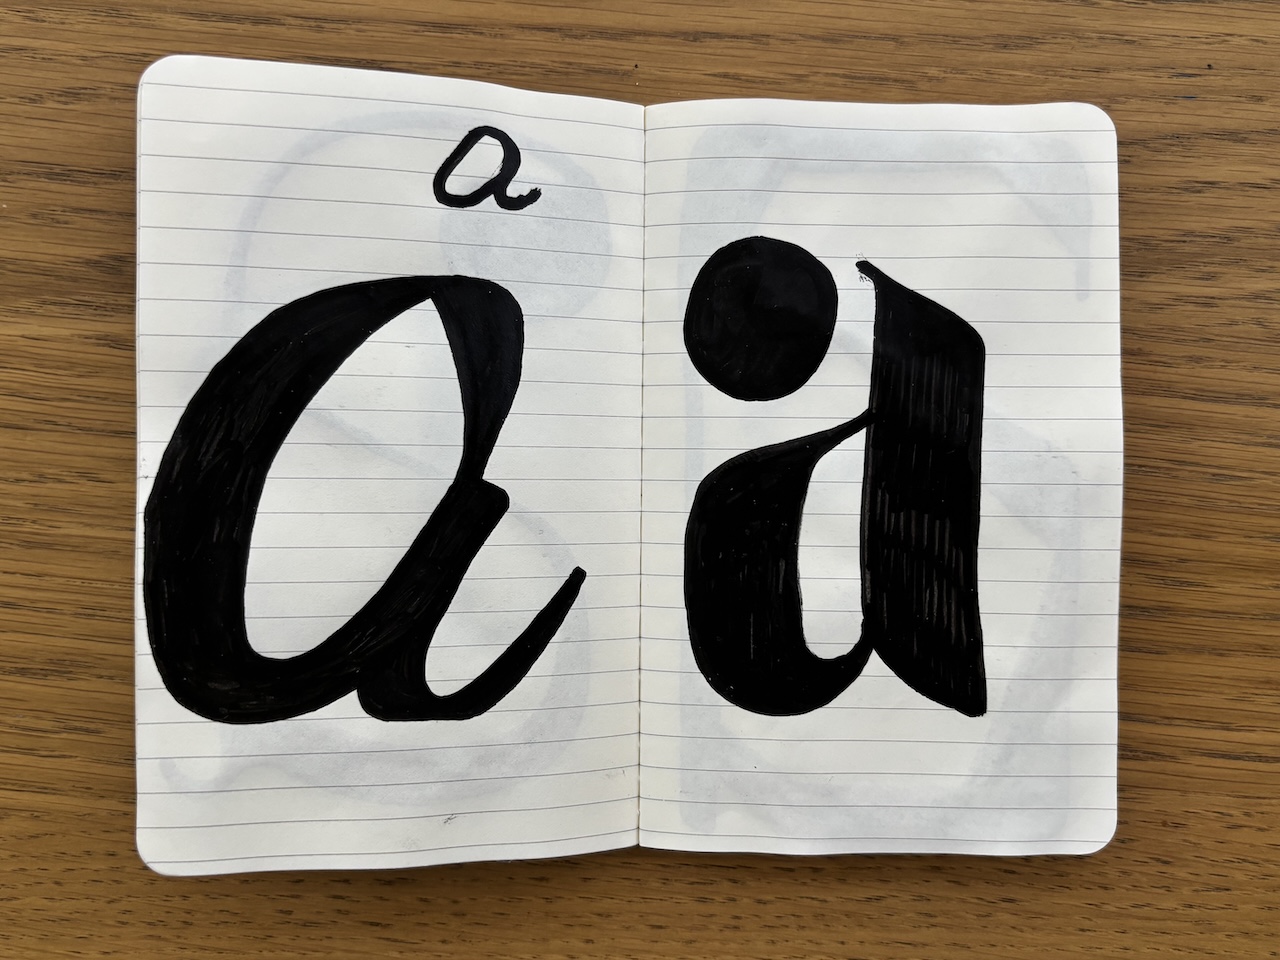 a
a a